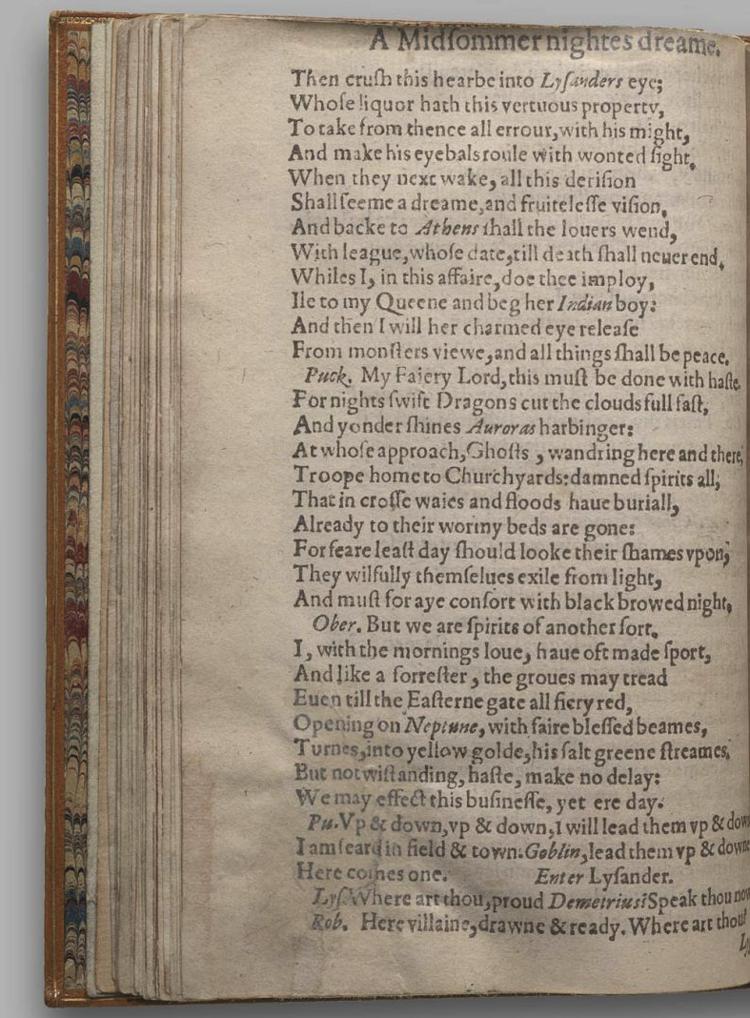 A Midſommer nightes dreame.
Then cruſh this hearbe into Lyſanders eye;
Whoſe liquor hath this vertuous property,
To take from thence all errour, with his might,
And make his eyebals roule with wonted ſight.
When they next wake, all this deriſion
Shall ſeeme a dreame, and fruiteleſſe viſion,
And backe to Athens ſhall the louers wend,
With league, whoſe date, till death ſhall neuer end.
Whiles I, in this affaire, doe thee imploy,
Ile to my Queene and beg her Indian boy:
And then I will her charmed eye releaſe
From monſters viewe, and all things ſhall be peace.
Puck. My Faiery Lord, this muſt be done with haſte.
For nights ſwift Dragons cut the clouds full faſt,
And yonder ſhines Auroras harbinger:
At whoſe approach, Ghoſts , wandring here and there,
Troope home to Churchyards: damned ſpirits all,
That in croſſe waies and floods haue buriall,
Already to their wormy beds are gone:
For feare leaſt day ſhould looke their ſhames vpon,
They wilfully themſelues exile from light,
And muſt for aye conſort with black browed night.
Ober. But we are ſpirits of another ſort.
I, with the mornings loue, haue oft made ſport,
And like a forreſter , the groues may tread
Euen till the Eaſterne gate all fiery red,
Opening on Neptune, with faire bleſſed beames,
Turnes, into yellow golde, his ſalt greene ſtreames.
But notwiſtanding, haſte, make no delay:
We may effect this buſineſſe, yet ere day.
Pu. Vp & down, vp & down, I will lead them vp & down
I am feard in field & town. Goblin, lead them vp & downe
Here comes one. Enter Lyſander.
Lyſ. Where art thou, proud Demetrius? Speak thou now
Rob. Here villaine, drawne & ready. Where art thou?